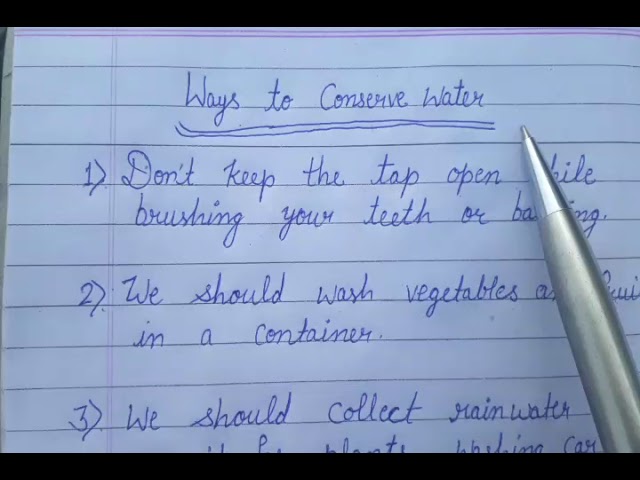 Ways to Conserve Water
1) Don't keep the tap open
brushing your teeth or
2) We should wash vegetables
in a container.
3) We should collect rainwater
plants, washing car